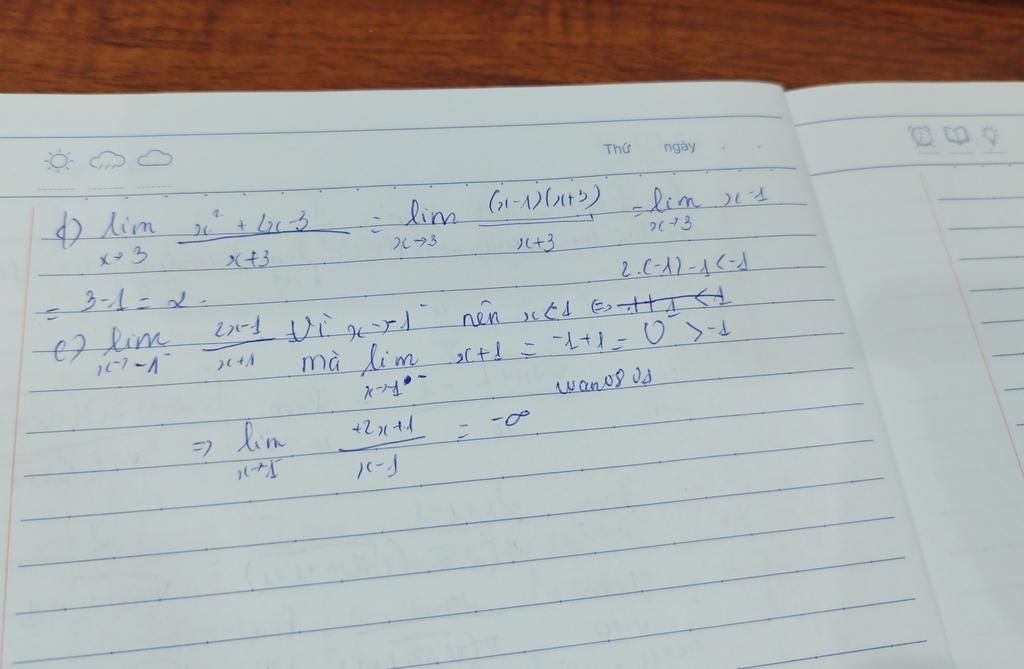 Thứ ngày
d) lim x→3 x² + 2x-3 / x+3 = lim x→3 (x-1)(x+3) / x+3 = lim x→3 x-1
= 3-1 = 2.
2.(-1)-1<-1
e) lim x→-1⁻ 2x-1 / x+1 Vì x→1⁻ nên x<1 ⇔ -1+1<1
mà lim x→1⁻ x+1 = -1+1 = 0⁻ >-1
wan0801
=> lim x→1⁻ +2x+1 / x-1 = -∞